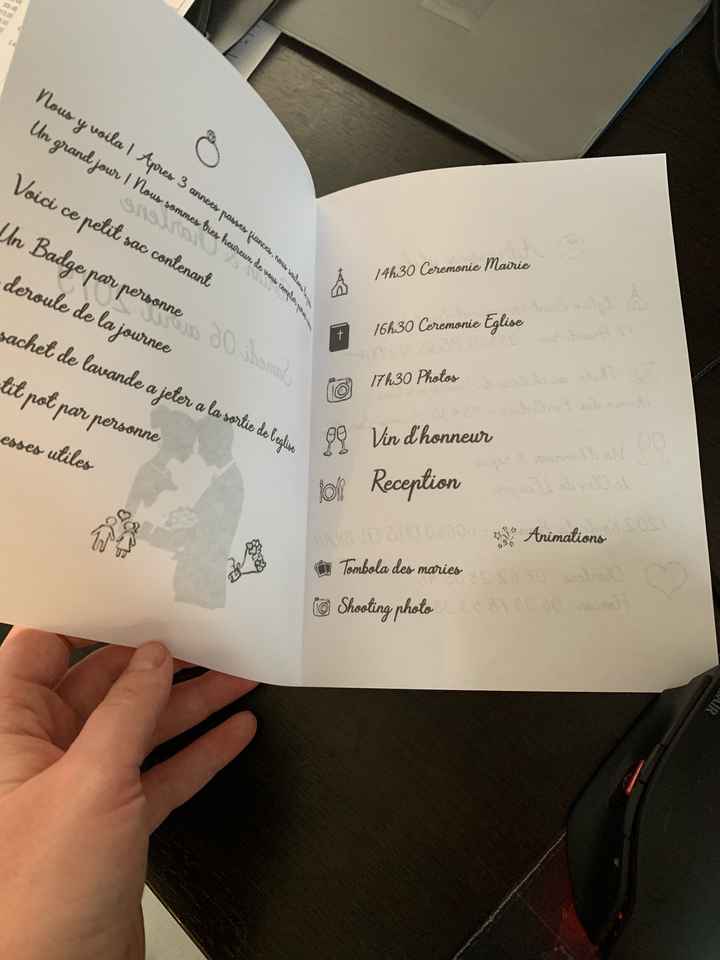 Nous y voila ! Apres 3 annees passes fiances, nous
Un grand jour ! Nous sommes tres heureux de vous compter
Voici ce petit sac contenant
Un Badge par personne
deroule de la journee
sachet de lavande a jeter a la sortie de l'eglise
tit pot par personne
esses utiles
14h30 Ceremonie Mairie
16h30 Ceremonie Eglise
17h30 Photos
Vin d'honneur
Reception
Animations
Tombola des maries
Shooting photo